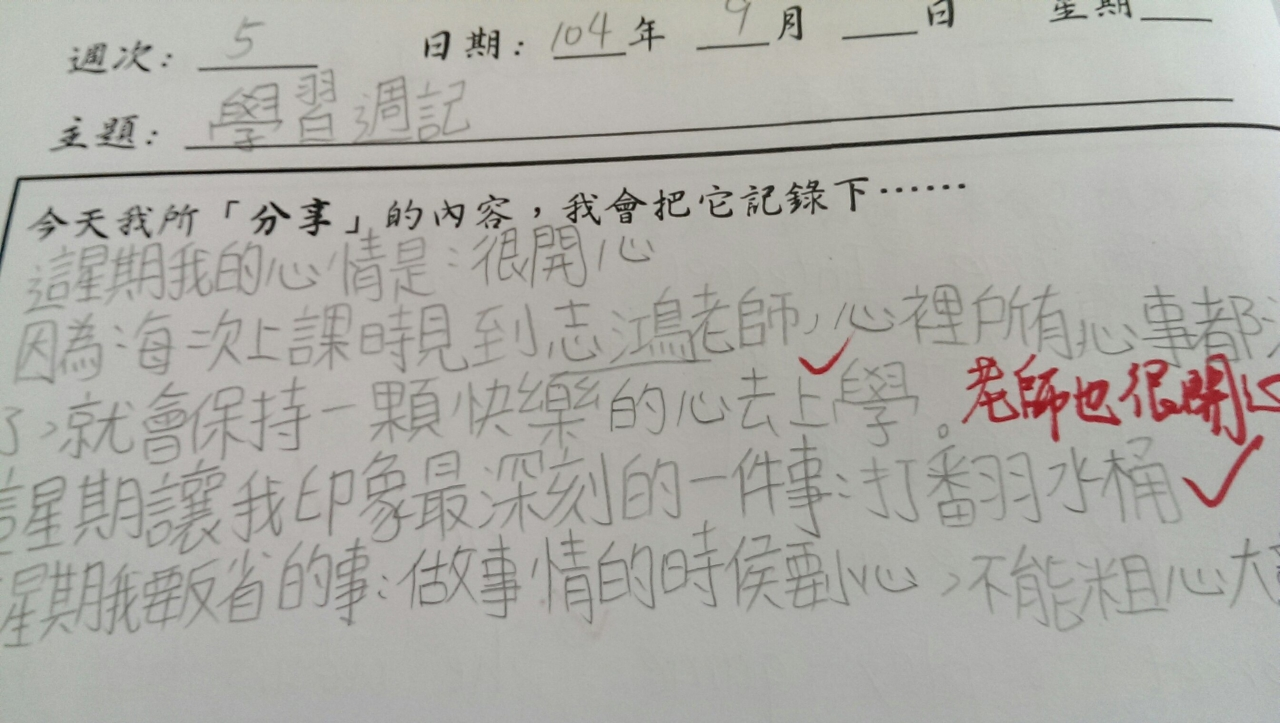 週次：5 日期：104年 9月 日 星期
主題：學習週記
今天我所「分享」的內容，我會把它記錄下⋯⋯
這星期我的心情是：很開心
因為：每次上課時見到志鴻老師，心裡所有心事都
了，就會保持一顆快樂的心去上學。老師也很開心
星期讓我印象最深刻的一件事：打翻水桶
星期我要反省的事：做事情的時侯要小心，不能粗心大